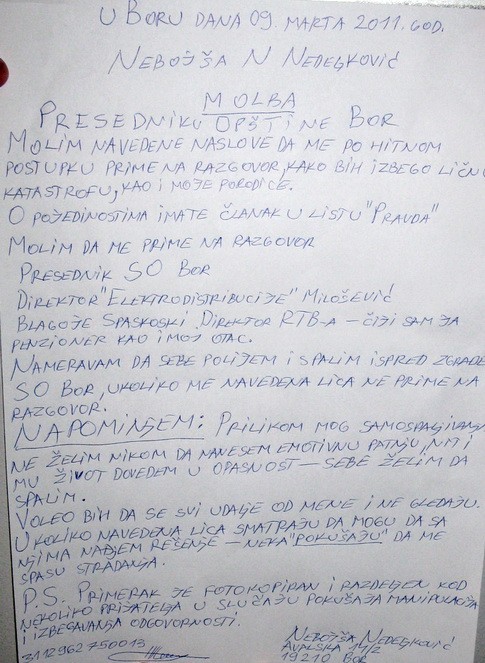 U BORU DANA 09. MARTA 2011. GOD.
NEBOJŠA N NEDELJKOVIĆ
MOLBA
PRESEDNIKU OPŠTINE BOR
MOLIM NAVEDENE NASLOVE DA ME PO HITNOM
POSTUPKU PRIME NA RAZGOVOR, KAKO BIH IZBEGO LIČNU
KATASTROFU, KAO I MOJE PORODICE.
O POJEDINOSTIMA IMATE ČLANAK U LISTU "PRAVDA"
MOLIM DA ME PRIME NA RAZGOVOR
PRESEDNIK SO BOR
DIREKTOR "ELEKTRODISTRIBUCIJE" MILOŠEVIĆ
BLAGOJE SPASKOSKI DIREKTOR RTB-A – ČIJI SAM JA
PENZIONER KAO I MOJ OTAC.
NAMERAVAM DA SEBE POLIJEM I SPALIM ISPRED ZGRADE
SO BOR, UKOLIKO ME NAVEDENA LICA NE PRIME NA
RAZGOVOR.
NAPOMINJEM: PRILIKOM MOG SAMOSPALJIVANJA
NE ŽELIM NIKOM DA NANESEM EMOTIVNU PATNJU, NITI
MU ŽIVOT DOVEDEM U OPASNOST – SEBE ŽELIM DA
SPALIM.
VOLEO BIH DA SE SVI UDALJE OD MENE I NE GLEDAJU.
UKOLIKO NAVEDENA LICA SMATRAJU DA MOGU DA SA
NJIMA NADJEM REŠENJE – NEKA "POKUŠAJU" DA ME
SPASU STRADANJA.
P.S. PRIMERAK JE FOTOKOPIRAN I RAZDELJEN KOD
NEKOLIKO PRIJATELJA U SLUČAJU POKUŠAJA MANIPULACIJA
I IZBEGAVANJA ODGOVORNOSTI.
3112962750013
NEBOJŠA NEDELJKOVIĆ
AVALSKA 14/2
19210 BOR